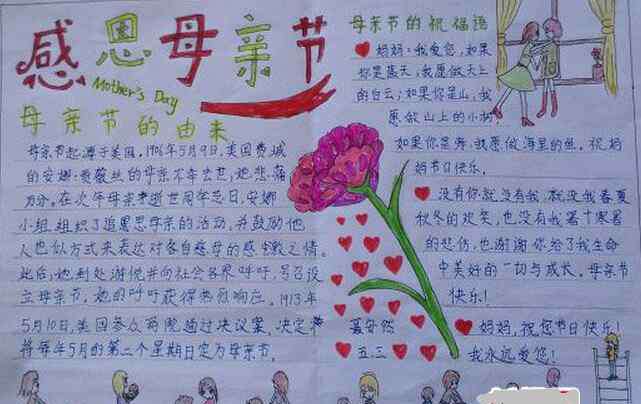 感恩母亲节
Mother's Day
母亲节的由来
母亲节起源于美国。1906年5月9日,美国费城
的安娜·贾薇丝的母亲不幸去世,她悲痛
万分。在次年母亲逝世周年忌日,安娜
小姐组织了追思母亲的活动,并鼓励他
人也以类似方式来表达对各自慈母的感激之情。
此后,她到处游说并向社会各界呼吁,号召设
立母亲节。她的呼吁获得热烈响应。1913年
5月10日,美国参众两院通过决议案,决定
将每年5月的第二个星期日定为母亲节。
母亲节的祝福语
妈妈:我爱您,如果
你是蓝天,我愿做天上
的白云;如果你是山,我
愿做山上的小树
如果你是海,我愿做海里的鱼。祝妈
妈节日快乐。
没有你就没有我,就没我春夏
秋冬的欢笑,也没有我寒十寒暑
的悲伤,也谢谢你给了我生命
中美好的一切与成长。母亲节
快乐!
妈妈,祝您节日快乐!
我永远爱您!
五三